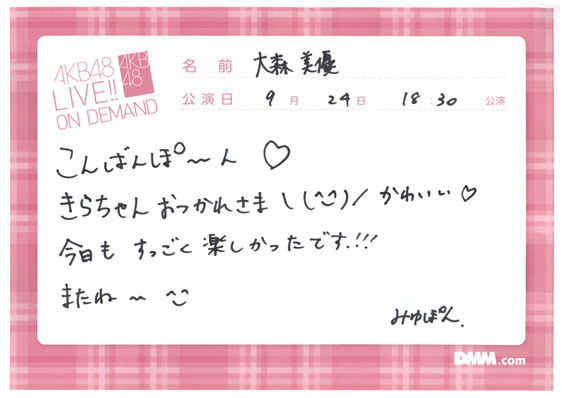 AKB48
LIVE!!
ON DEMAND
AKB
48
名前 大森美優
公演日 9月 24日 18:30 公演
こんばんぽ〜ん ♡
きらちゃん おつかれさま \(^^)/ かわいい♡
今日も すっごく 楽しかったです!!!
またね〜 ^^
みゆぽん.
DMM.com